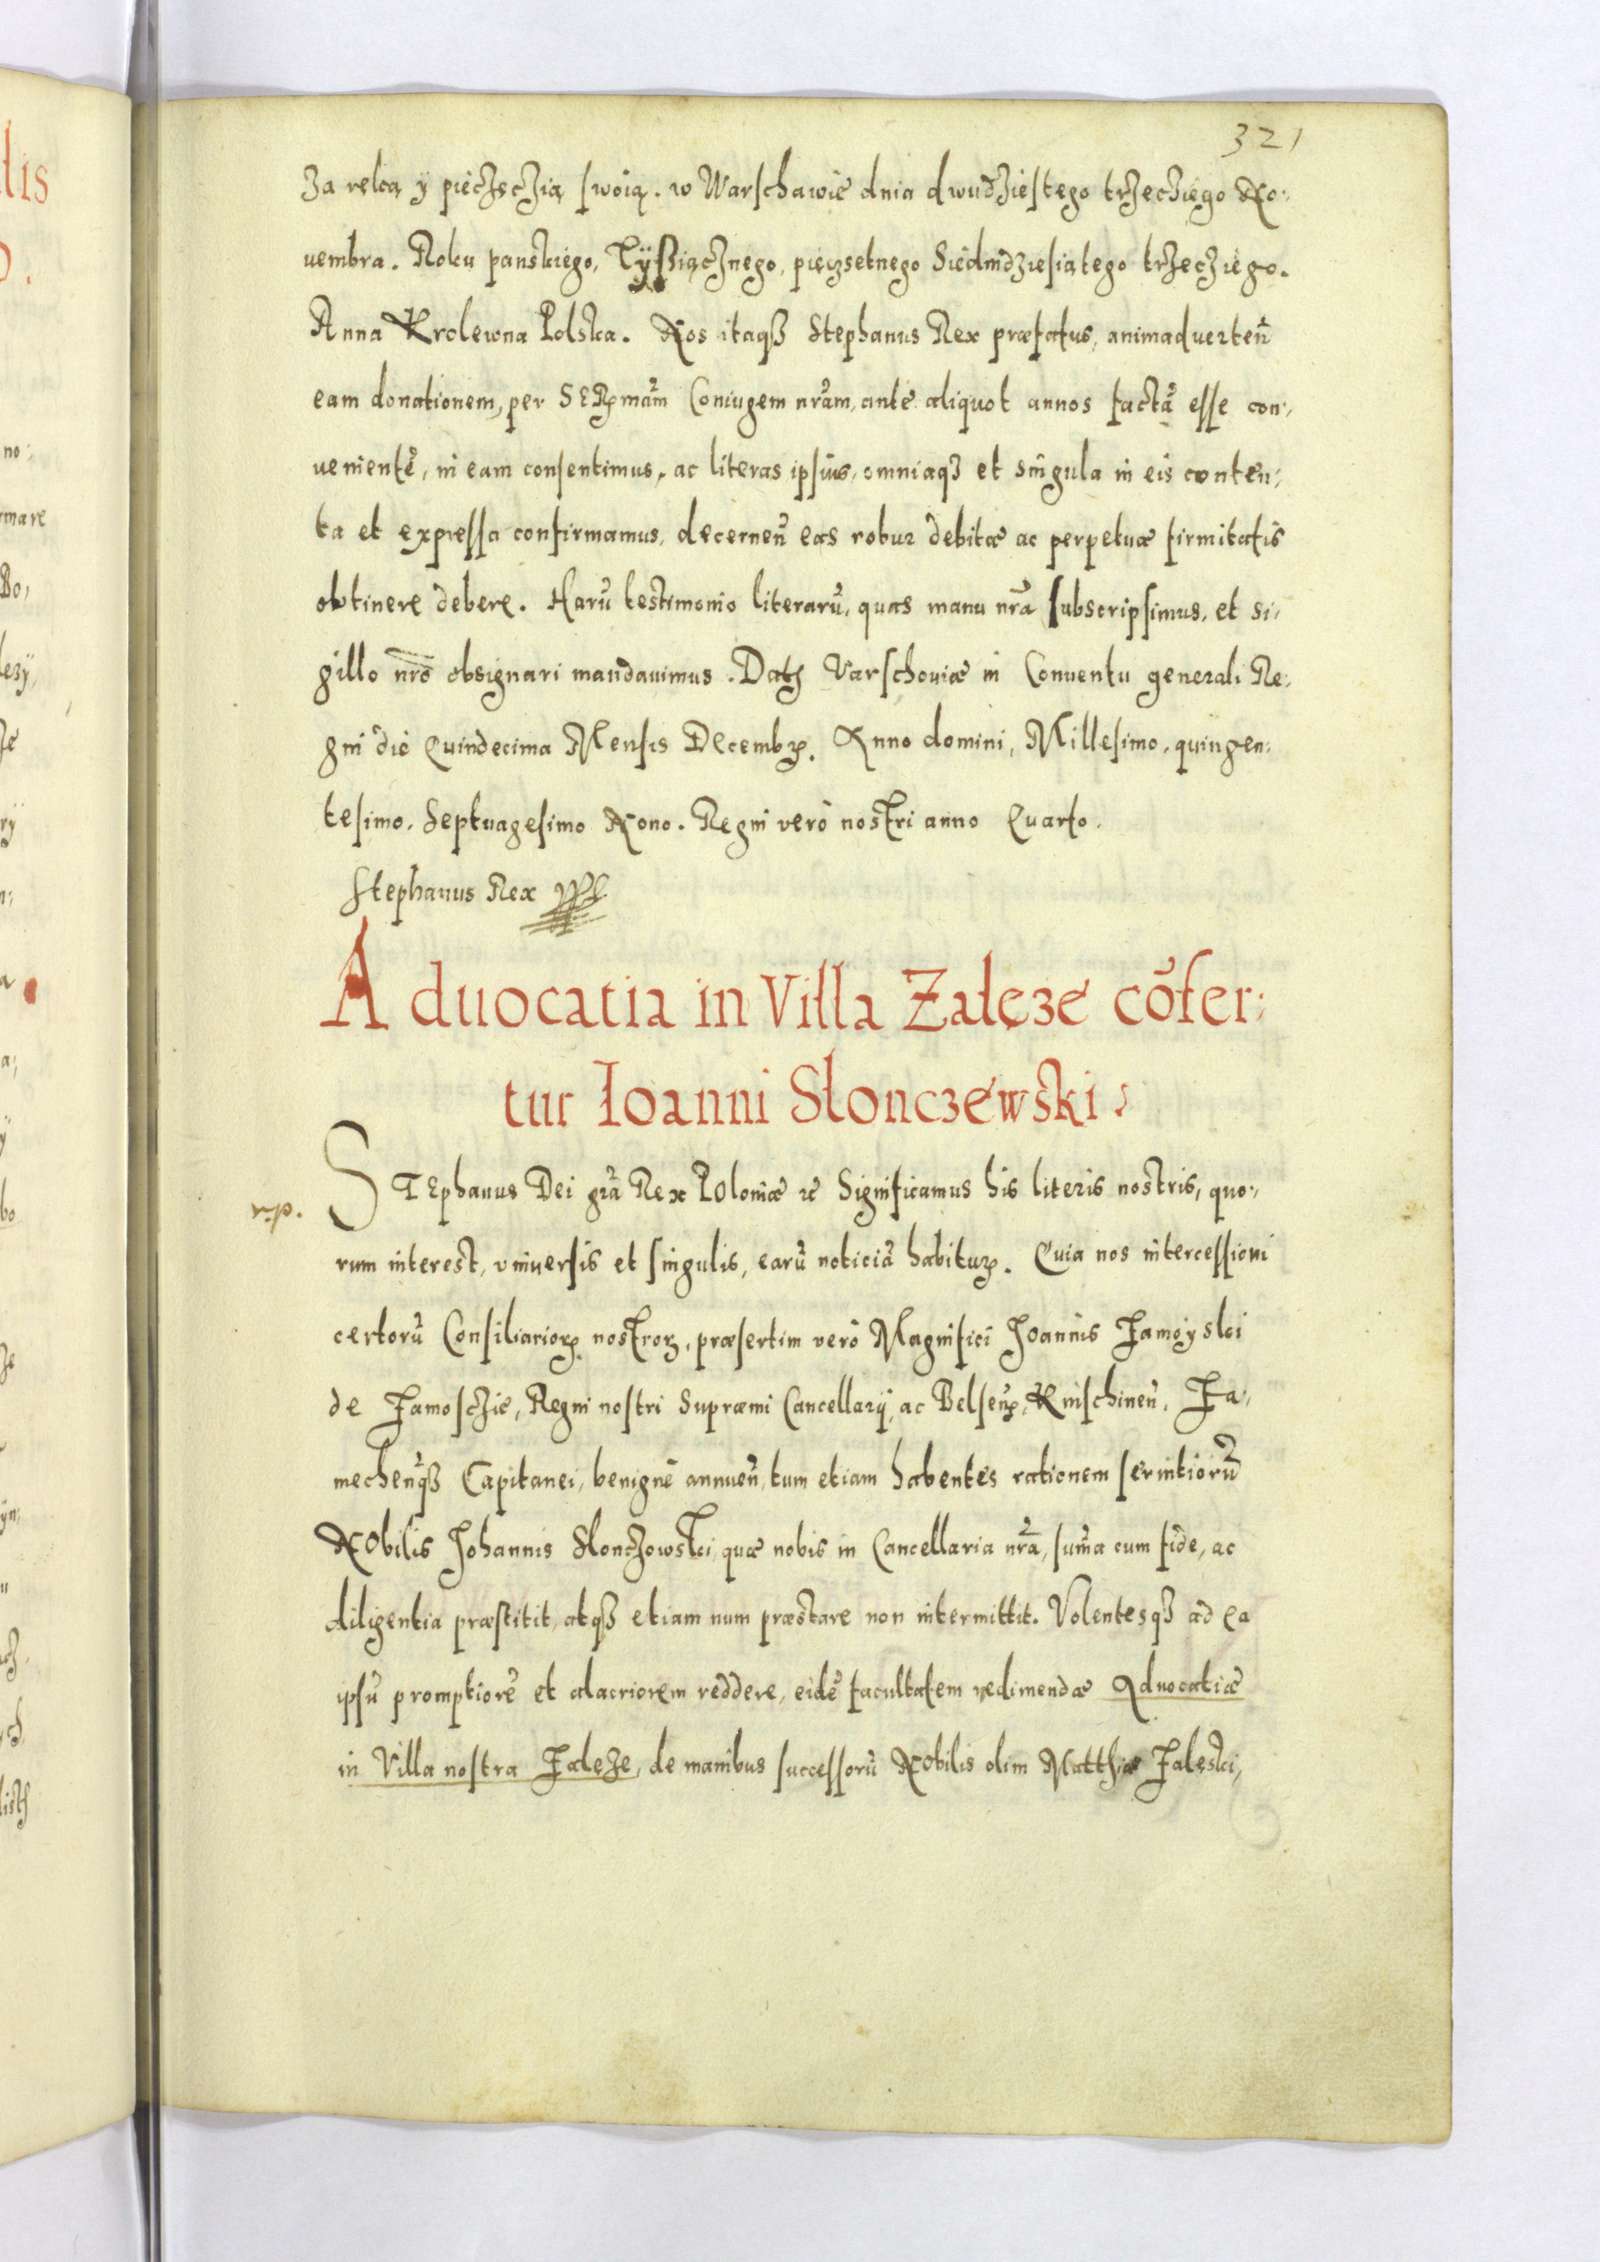 321
Za reką y pieczęczią swoią. w Warschawie dnia dwudziestego trzecziego No⸗
uembra. Roku panskiego, Tyßiącznego, pięczsetnego Siedmdziesiątego trzecziego.
Anna Krolewna Polska. Nos itaqꝫ Stephanus Rex præfatus, animaduerteñ
eam donationem, per SERmãm Coniugem nr̃am, ante aliquot annos factã esse con⸗
uenientẽ, in eam consentimus, ac literas ipsius, omniaqꝫ et singula in eis conten⸗
ta et expressa confirmamus, decerneñ eas robur debitæ ac perpetuæ firmitatis
obtinere debere. Harũ testimonio literarũ, quas manu nr̃a subscripsimus, et si⸗
gillo nr̃o obsignari mandauimus. Datꝫ Varschouiæ in Conuentu generali Re⸗
gni die Quindecima Mensis Decembꝝ. Anno domini, Millesimo, quingen⸗
tesimo, Septuagesimo Nono. Regni verò nostri anno Quarto.
Stephanus Rex
Aduocatia in Villa Załęze cõfer⸗
tur Ioanni Słonczewski
r.p.
STEphanus Dei gr̃a Rex Poloniæ ꝛc Significamus his literis nostris, quo⸗
rum interest, vniuersis et singulis, earũ noticiã habituꝝ. Quia nos intercessioni
certorũ Consiliarioꝝ nostroꝝ, præsertim verò Magnifici Joannis Zamoyski
de Zamosczie, Regni nostri Supræmi Cancellarij, ac Belseñ, Knischineñ, Za⸗
mecheñqꝫ Capitanei, benignè annueñ, tum etiam habentes rationem seruitiorũ
Nobilis Johannis Slonczowski, quæ nobis in Cancellaria nr̃a, sum̃a cum fide, ac
diligentia præstitit, atqꝫ etiam num præstare non intermittit. Volentesqꝫ ad ea
ipsũ promptiorẽ et alacriorem reddere, eidẽ facultatem redimendæ Aduocatiæ
in Villa nostra Zalęze, de manibus successorũ Nobilis olim Matthiæ Zalęski,